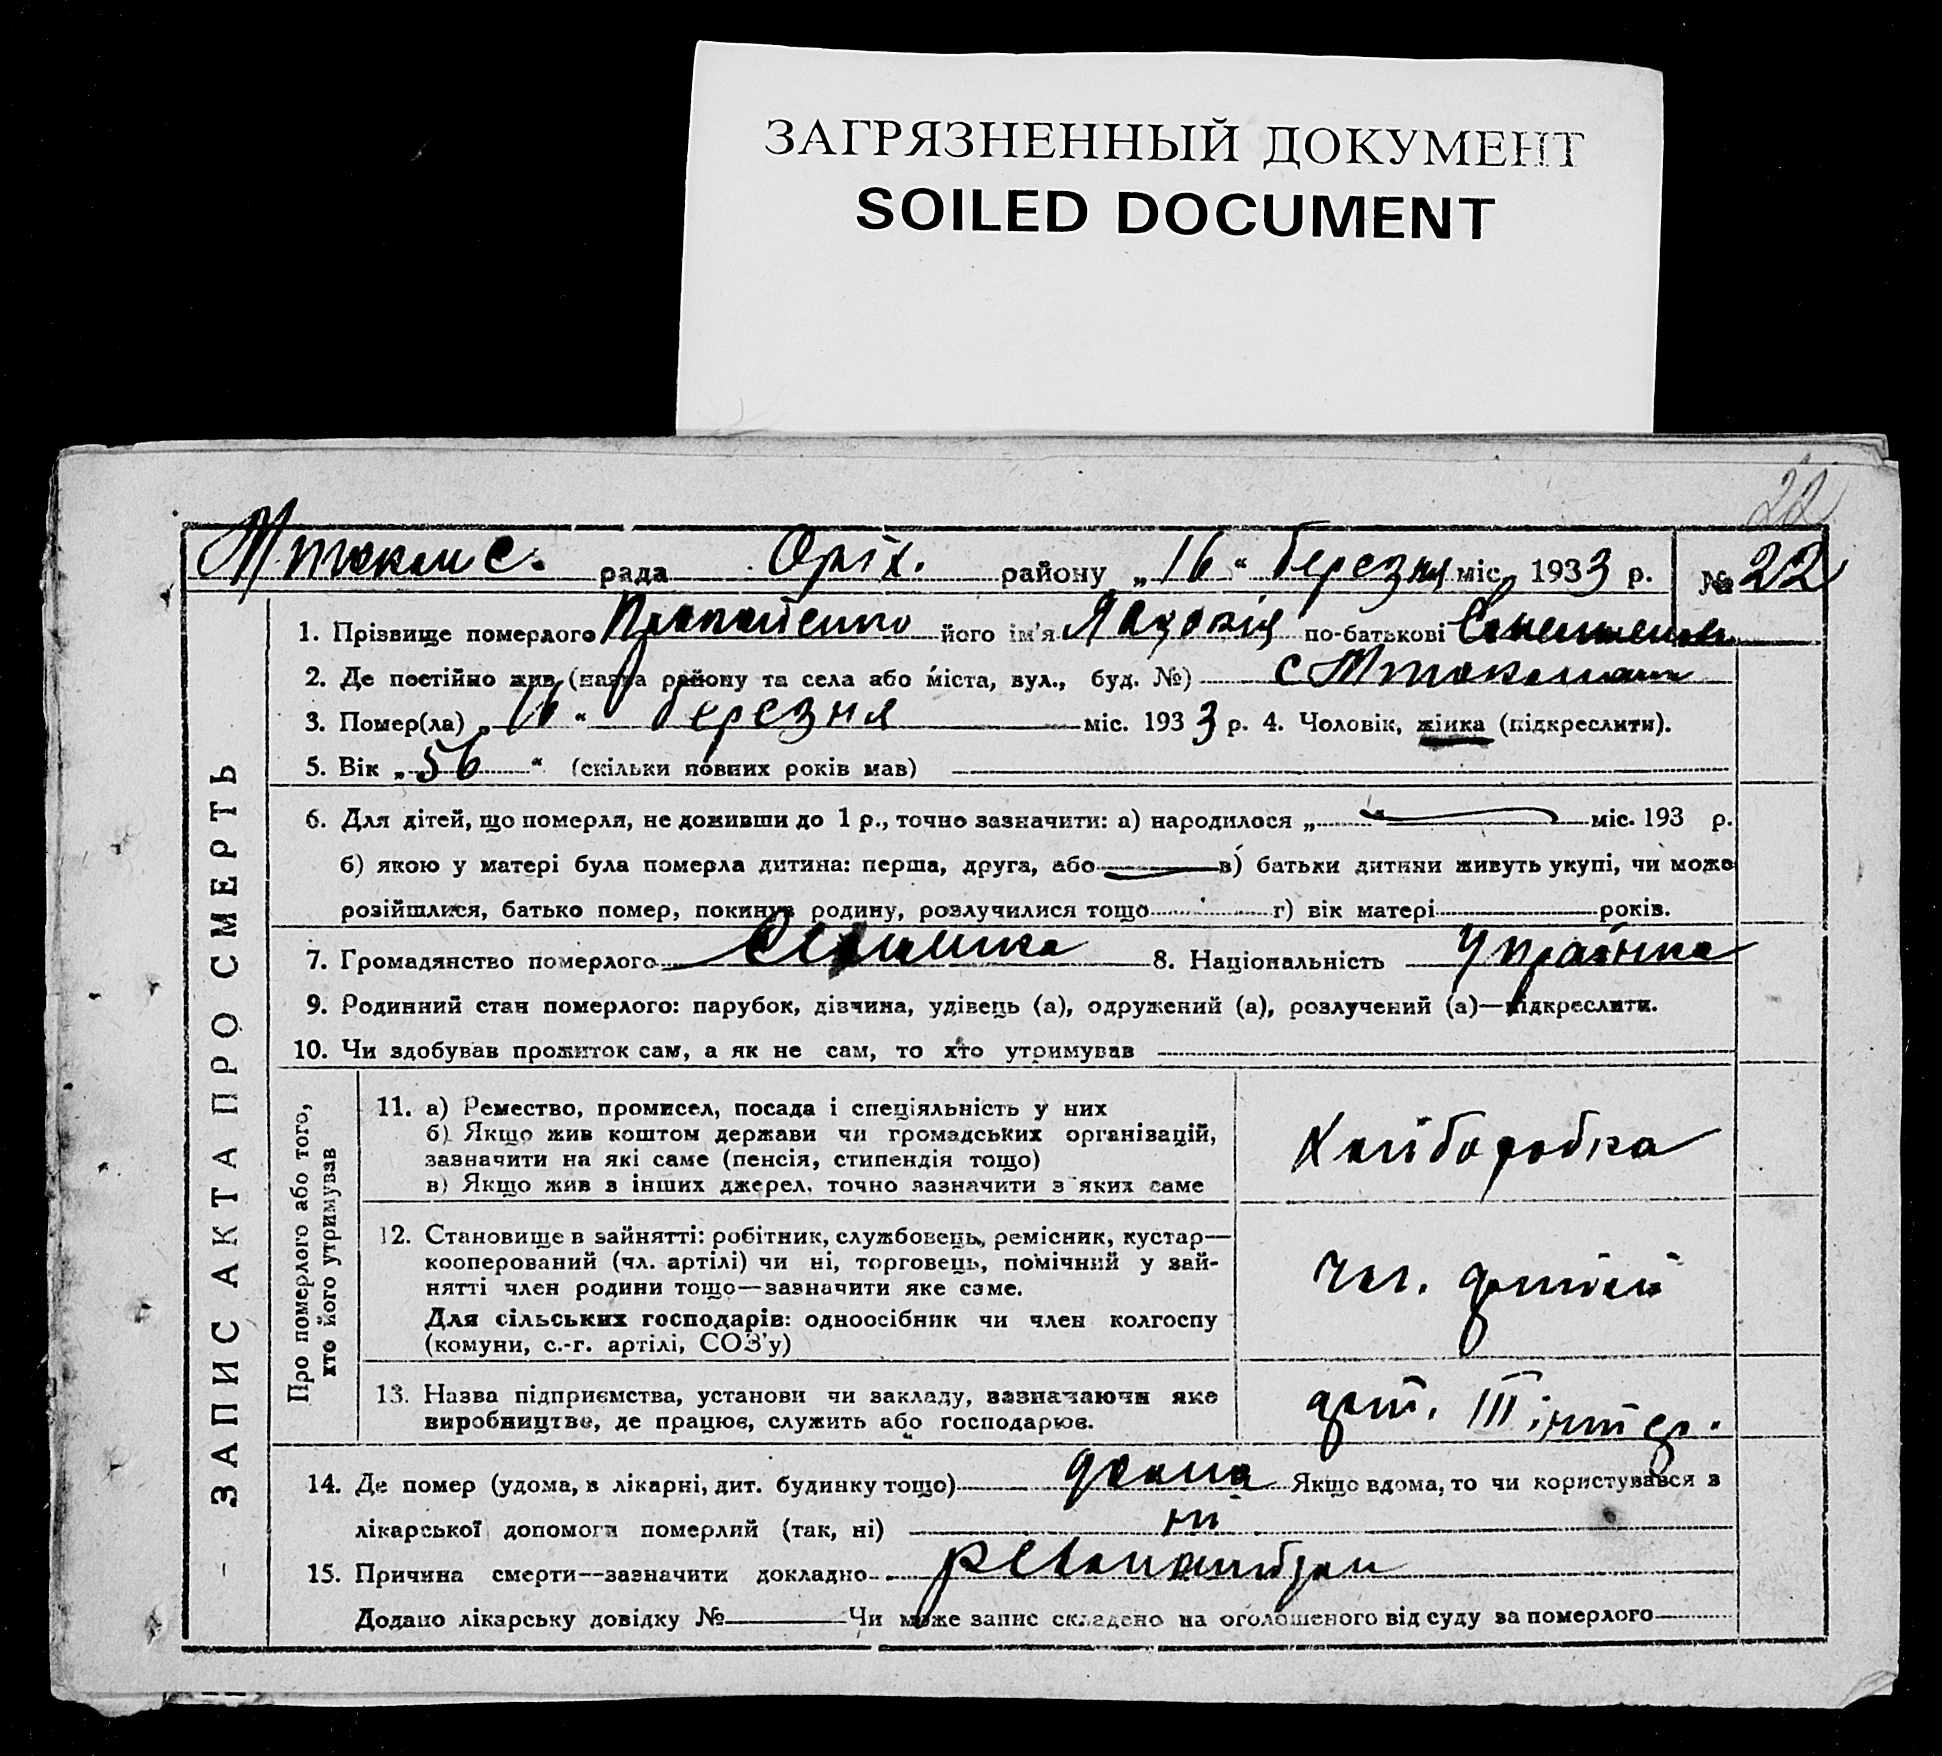 ЗАГРЯЗНЕННЫЙ ДОКУМЕНТ
SOILED DOCUMENT
22
рада Оріх. району „16“ березня міс. 1933 р. № 22
ЗАПИС АКТА ПРО СМЕРТЬ
1. Прізвище померлого його ім'я по-батькові
2. Де постійно жив (назва району та села або міста, вул., буд. №) с
3. Помер(ла) „16“ березня міс. 1933 р. 4. Чоловік, жінка (підкреслити).
5. Вік „56“ (скільки повних років мав)
6. Для дітей, що померли, не доживши до 1 р., точно зазначити: а) народилося „ “ міс. 193 р.
б) якою у матері була померла дитина: перша, друга, або в) батьки дитини живуть укупі, чи може
розійшлися, батько помер, покинув родину, розлучилися тощо г) вік матері років.
7. Громадянство померлого 8. Національність Українка
9. Родинний стан померлого: парубок, дівчина, удівець (а), одружений (а), розлучений (а)—підкреслити.
10. Чи здобував прожиток сам, а як не сам, то хто утримував
Про померлого або того,
хто його утримував
11. а) Ремество, промисел, посада і спеціяльність у них
б) Якщо жив коштом держави чи громадських організацій,
зазначити на які саме (пенсія, стипендія тощо)
в) Якщо жив з інших джерел, точно зазначити з яких саме
Хліборобка
12. Становище в зайнятті: робітник, службовець, ремісник, кустар—
кооперований (чл. артілі) чи ні, торговець, помічний у зай-
нятті член родини тощо—зазначити яке саме.
Для сільських господарів: одноосібник чи член колгоспу
(комуни, с.-г. артілі, СОЗ'у)
чл. артілі
13. Назва підприємства, установи чи закладу, зазначаючи яке
виробництво, де працює, служить або господарює.
арт. III інтер.
14. Де помер (удома, в лікарні, дит. будинку тощо) дома Якщо вдома, то чи користувався з
лікарської допомоги померлий (так, ні) ні
15. Причина смерти—зазначити докладно
Додано лікарську довідку № Чи може запис складено на оголошеного від суду за померлого